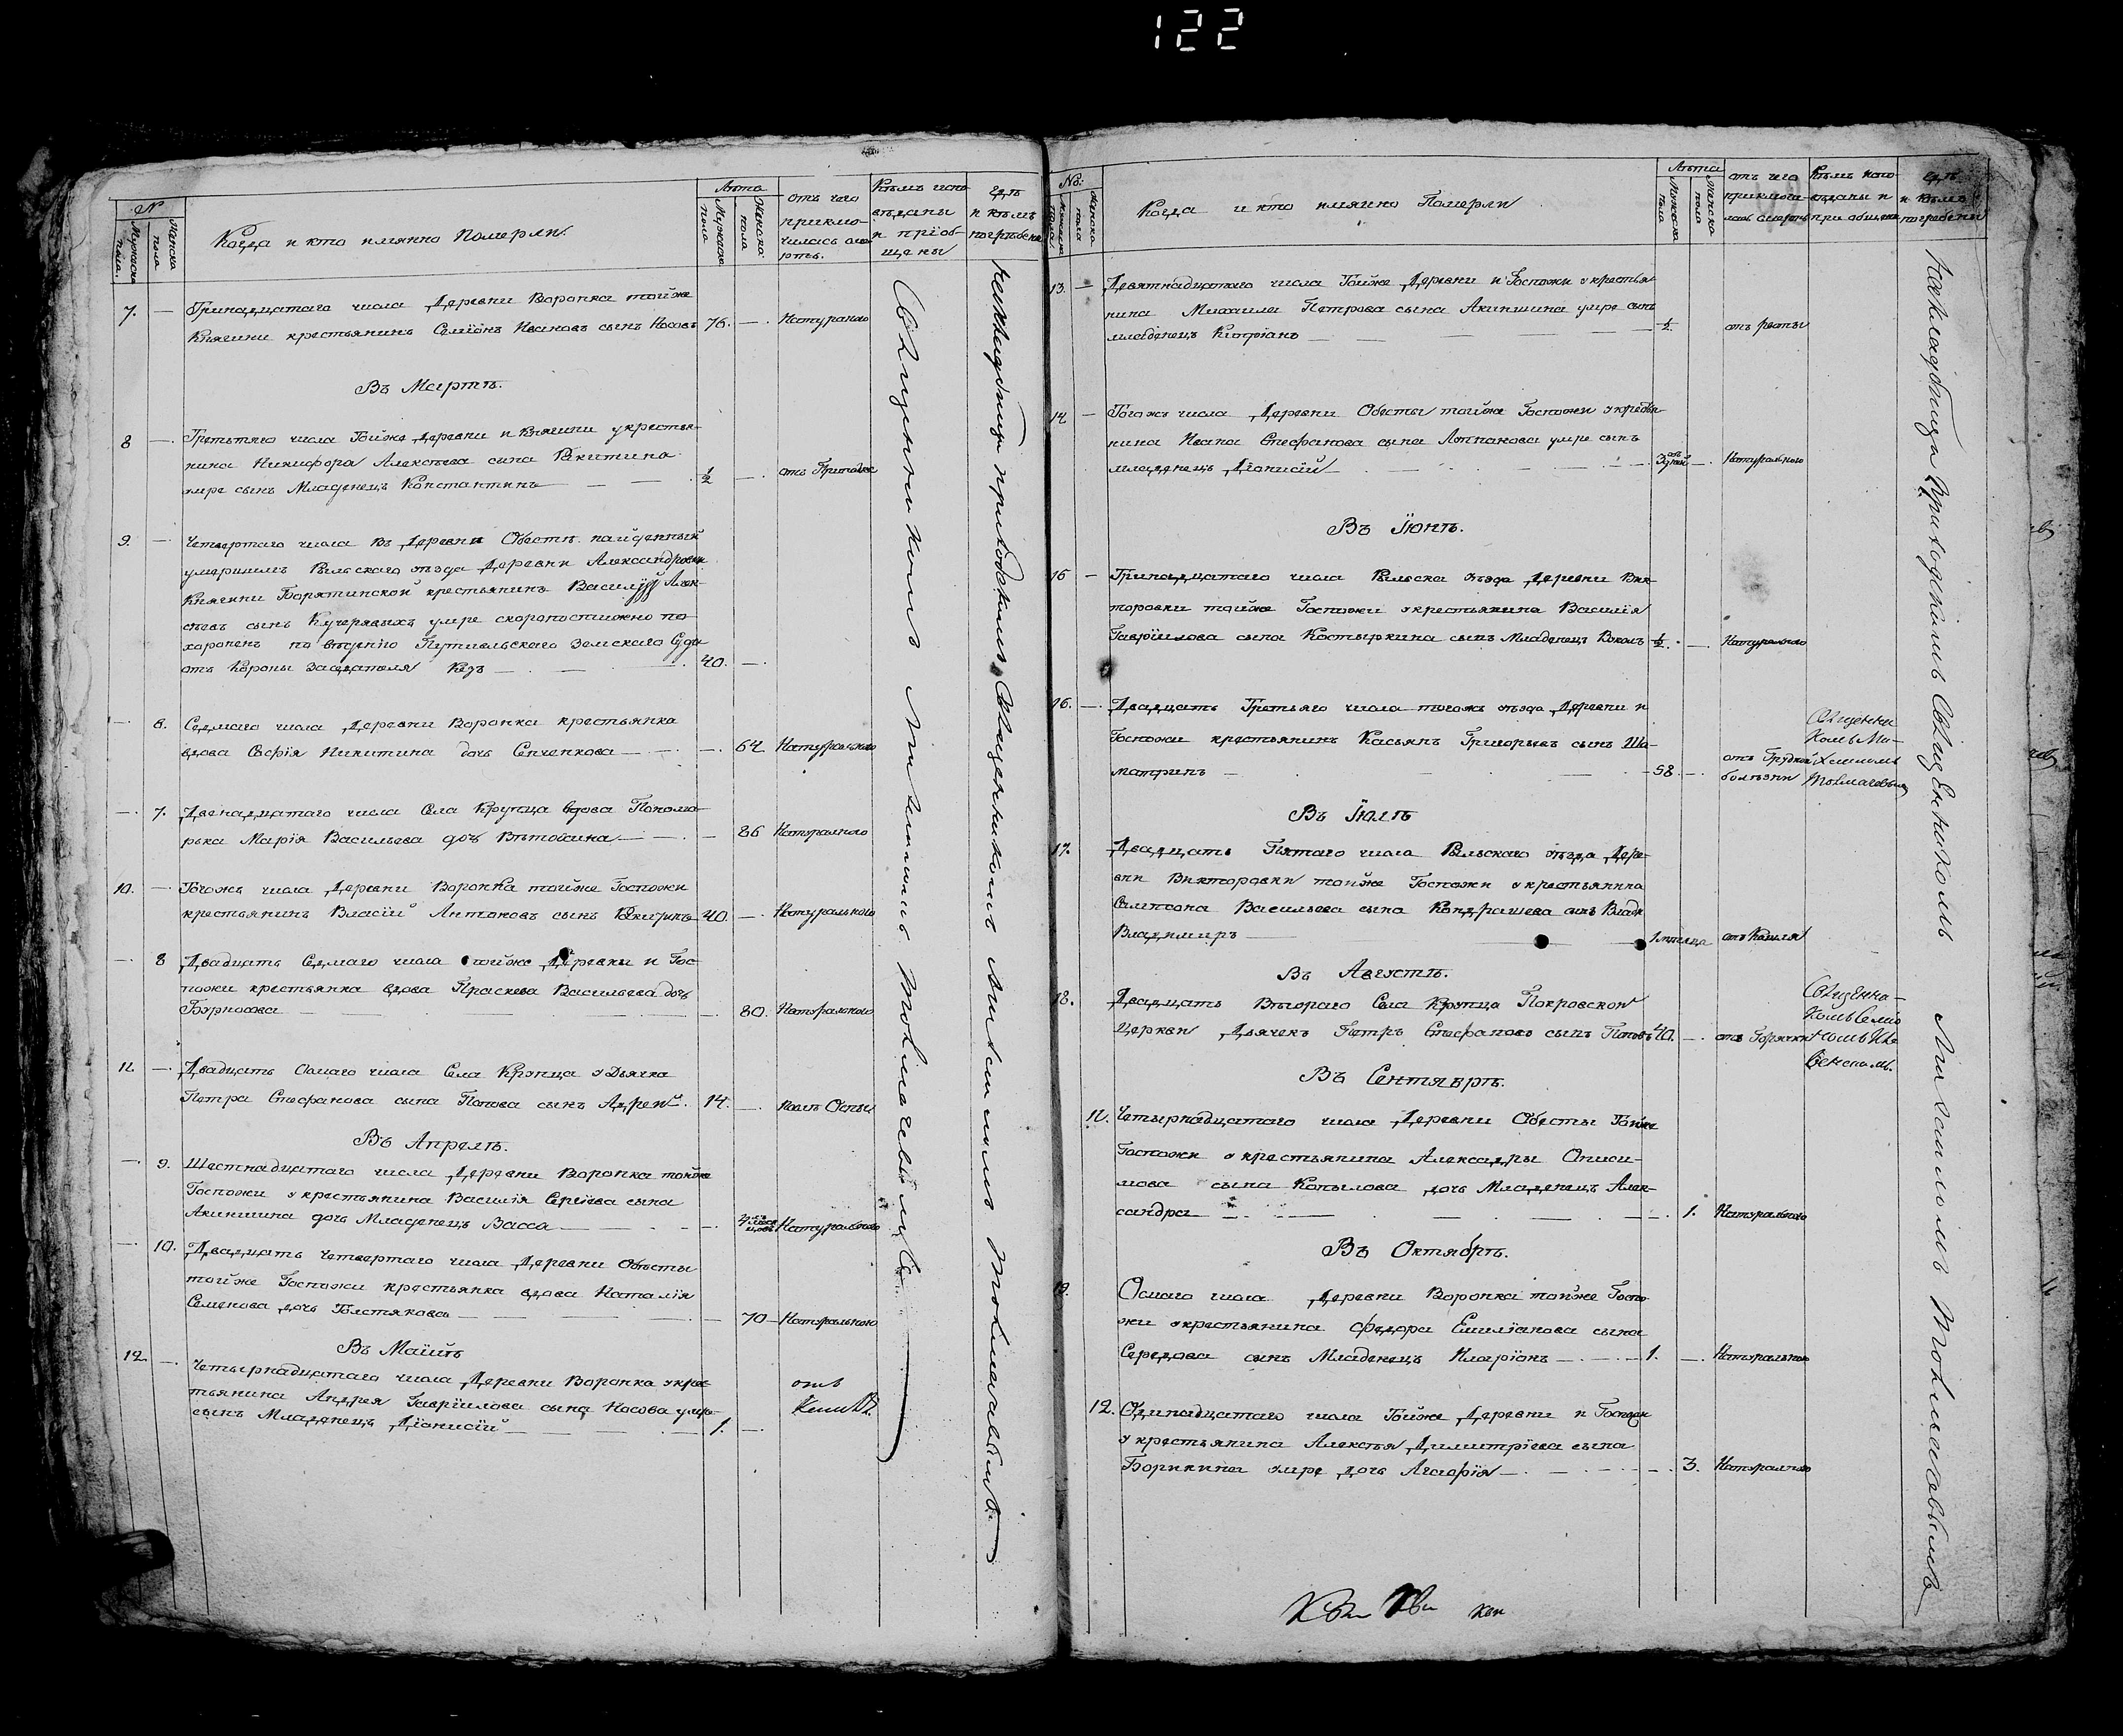 122
N
Мужеска пола.
Женска пола
Когда и кто имянно Померли.
Лѣта
Мужеска пола
Женска пола
отъ чего
приклю-
чилась сме-
рть.
Кѣмъ испо
вѣданы
и пріоб-
щены
гдѣ
и кѣмъ
погребены
7. — Тринадцатаго числа Деревни Воронка тойже
Княгини крестьянинъ Семіонъ Ивановъ сынъ Носовъ 76. — Натурално
Въ Мартѣ.
8 — Третьяго числа Тойже деревни и Княгини у крестья-
нина Никифора Алексѣева сына Рѣкитина
умре сынъ Младенецъ Константинъ — 1/2 —
9. — Четвертаго числа въ Деревни Обестѣ найденный
умершимъ Рыльскаго уѣзда Деревни Александровки
Княгини Борятинской крестьянинъ Василій Алек-
сѣевъ сынъ Кучерявыхъ умре скоропостижно по-
хороненъ по вѣденію Путивльскаго Земскаго Суда
отъ Короны Засѣдателя — 40. —
— 6. Седмаго числа Деревни Воронка крестьянка
вдова Софія Никитина дочь Сенченкова — 64 Натурального
— 7. Двенадцатаго числа Села Крупца вдова Понома-
рька Марія Васильева дочь — 86 Натурално
10. — Тогожъ числа Деревни Воронка тойже Госпожи
крестьянинъ Власій Антоновъ сынъ 40. — Натурального
— 8 Двадцать Седмаго числа тойже Деревни и Гос-
пожи крестьянка вдова Праскева Васильева дочь
— 80. Натурального
11. — Двадцать Осмаго числа Села Крупца у Дьячка
Петра Стефанова сына Попова сынъ Андрей. 14. — Оспы
Въ Апрелѣ.
— 9. Шестнадцатаго числа Деревни Воронка тойже
Госпожи у крестьянина Василія Сергіева сына
Акиншина дочь Младенецъ Васса — Натурального
— 10. Двадцать четвертаго числа Деревни Обѣсты
тойже Госпожи крестьянка вдова Наталія
Семенова дочь — 70 — Натурально
Въ Маіи
12 — Четырнадцатаго числа Деревни Воронка у крес-
тьянина Андрея Гавріилова сына Носова умре
сынъ Младенецъ Діонисій — 1. — отъ
Священникомъ
На кладбищѣ приходскимъ Священникомъ
No:
Мужеска пола
Женска пола
Когда и кто имянно Померли
Лѣта
Мужеска пола
Женска пола
отъ чего
приключи-
лась смерть
Кѣмъ испо-
вѣданы и
при общены
гдѣ
и кѣмъ
погребены
13. — Девятнадцатаго числа Тойже Деревни и Госпожи у крестья-
нина Михаила Петрова сына Акиншина умре сынъ
младенецъ — 1/2. отъ рвоты
14 — Тогожъ числа Деревни Обесты тойже Госпожи у крестья-
нина Ивана Стефанова сына умре сынъ
младенецъ Діонисій — Натурального
Въ Іюнѣ.
15 — Тринадцатаго числа Рыльска уѣзда Деревни Вик-
торовки тойже Госпожи у крестьянина Василія
Гавріилова сына Костыркина сынъ Младенецъ 1/2. — Натурально
16. — Двадцать Третьяго числа тогожъ уѣзда Деревни и
Госпожи крестьянинъ Касьянъ Григорьевъ сынъ Ша-
матринъ — 58. — отъ Грудной
болѣзни
Священни
комъ
Въ Іюлѣ
17. Двадцать Пятаго числа Рыльскаго уѣзда Дере-
вни Викторовки тойже Госпожи у крестьянина
Сампсона Васильева сына Кондрашева сынъ Влади
Владимиръ — 1 месяца отъ Кашля
Въ Августѣ.
18. Двадцать Втораго Села Крупца Покровской
Церкви Дьячекъ Петръ Стефановъ сынъ Поповъ 40. — отъ Горячки
Священни-
комъ
Въ Сентябрѣ.
11. Четырнадцатаго числа Деревни Обесты Тойже
Госпожи у крестьянина Александры Ониси-
мова сына Копылова дочь Младенецъ Алек-
сандра — 1. Натурального
Въ Октябрѣ.
19. Осмаго числа Деревни Воронка тойже Госпо-
жи у крестьянина Федора Емиліанова сына
Середова сынъ Младенецъ Иларіонъ — 1. — Натурально
12. Одинадцатаго числа Тойже Деревни и Госпожи
у крестьянина Алексѣя Димитріева сына
Борикина умре дочь Агафія — 3. Натурално
На кладбищѣ Приходскимъ Священникомъ